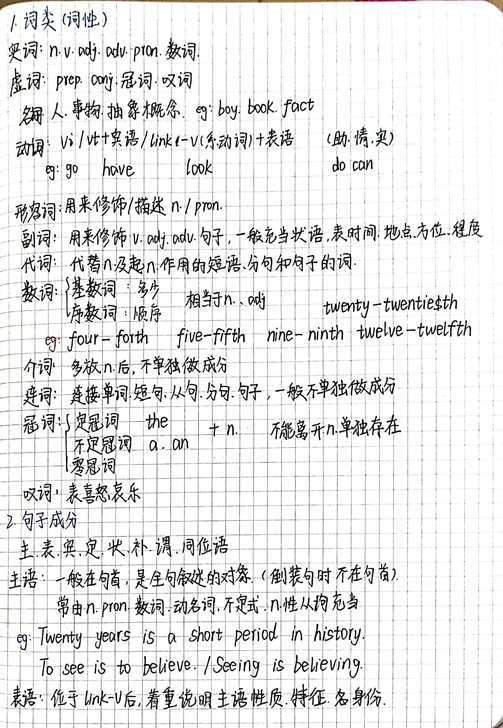 1. 词类(词性)
实词: n. v. adj. adv. pron. 数词.
虚词: prep. conj. 冠词. 叹词
名词 人. 事物. 抽象概念. eg: boy. book. fact
动词: vi / vt+宾语 / link-v(系动词)+表语 (助. 情. 实)
eg: go have look do can
形容词: 用来修饰/描述 n. / pron.
副词: 用来修饰 v. adj. adv. 句子, 一般充当状语, 表时间. 地点. 方位. 程度
代词: 代替n. 及起n. 作用的短语. 分句和句子的词.
数词: 基数词: 多少 相当于n. adj
序数词: 顺序 twenty-twentiesth
eg: four-forth five-fifth nine-ninth twelve-twelfth
介词: 多放n. 后, 不单独做成分
连词: 连接单词. 短句. 从句. 分句. 句子, 一般不单独做成分
冠词: 定冠词 the
不定冠词 a. an + n. 不能离开n. 单独存在
零冠词
叹词: 表喜怒哀乐
2. 句子成分
主. 表. 宾. 定. 状. 补. 谓. 同位语
主语: 一般在句首, 是全句叙述的对象. (倒装句时不在句首).
常由n. pron. 数词. 动名词. 不定式. n. 性从句充当
eg: Twenty years is a short period in history.
To see is to believe. / Seeing is believing.
表语: 位于link-v后, 着重说明主语性质. 特征. 名身份.